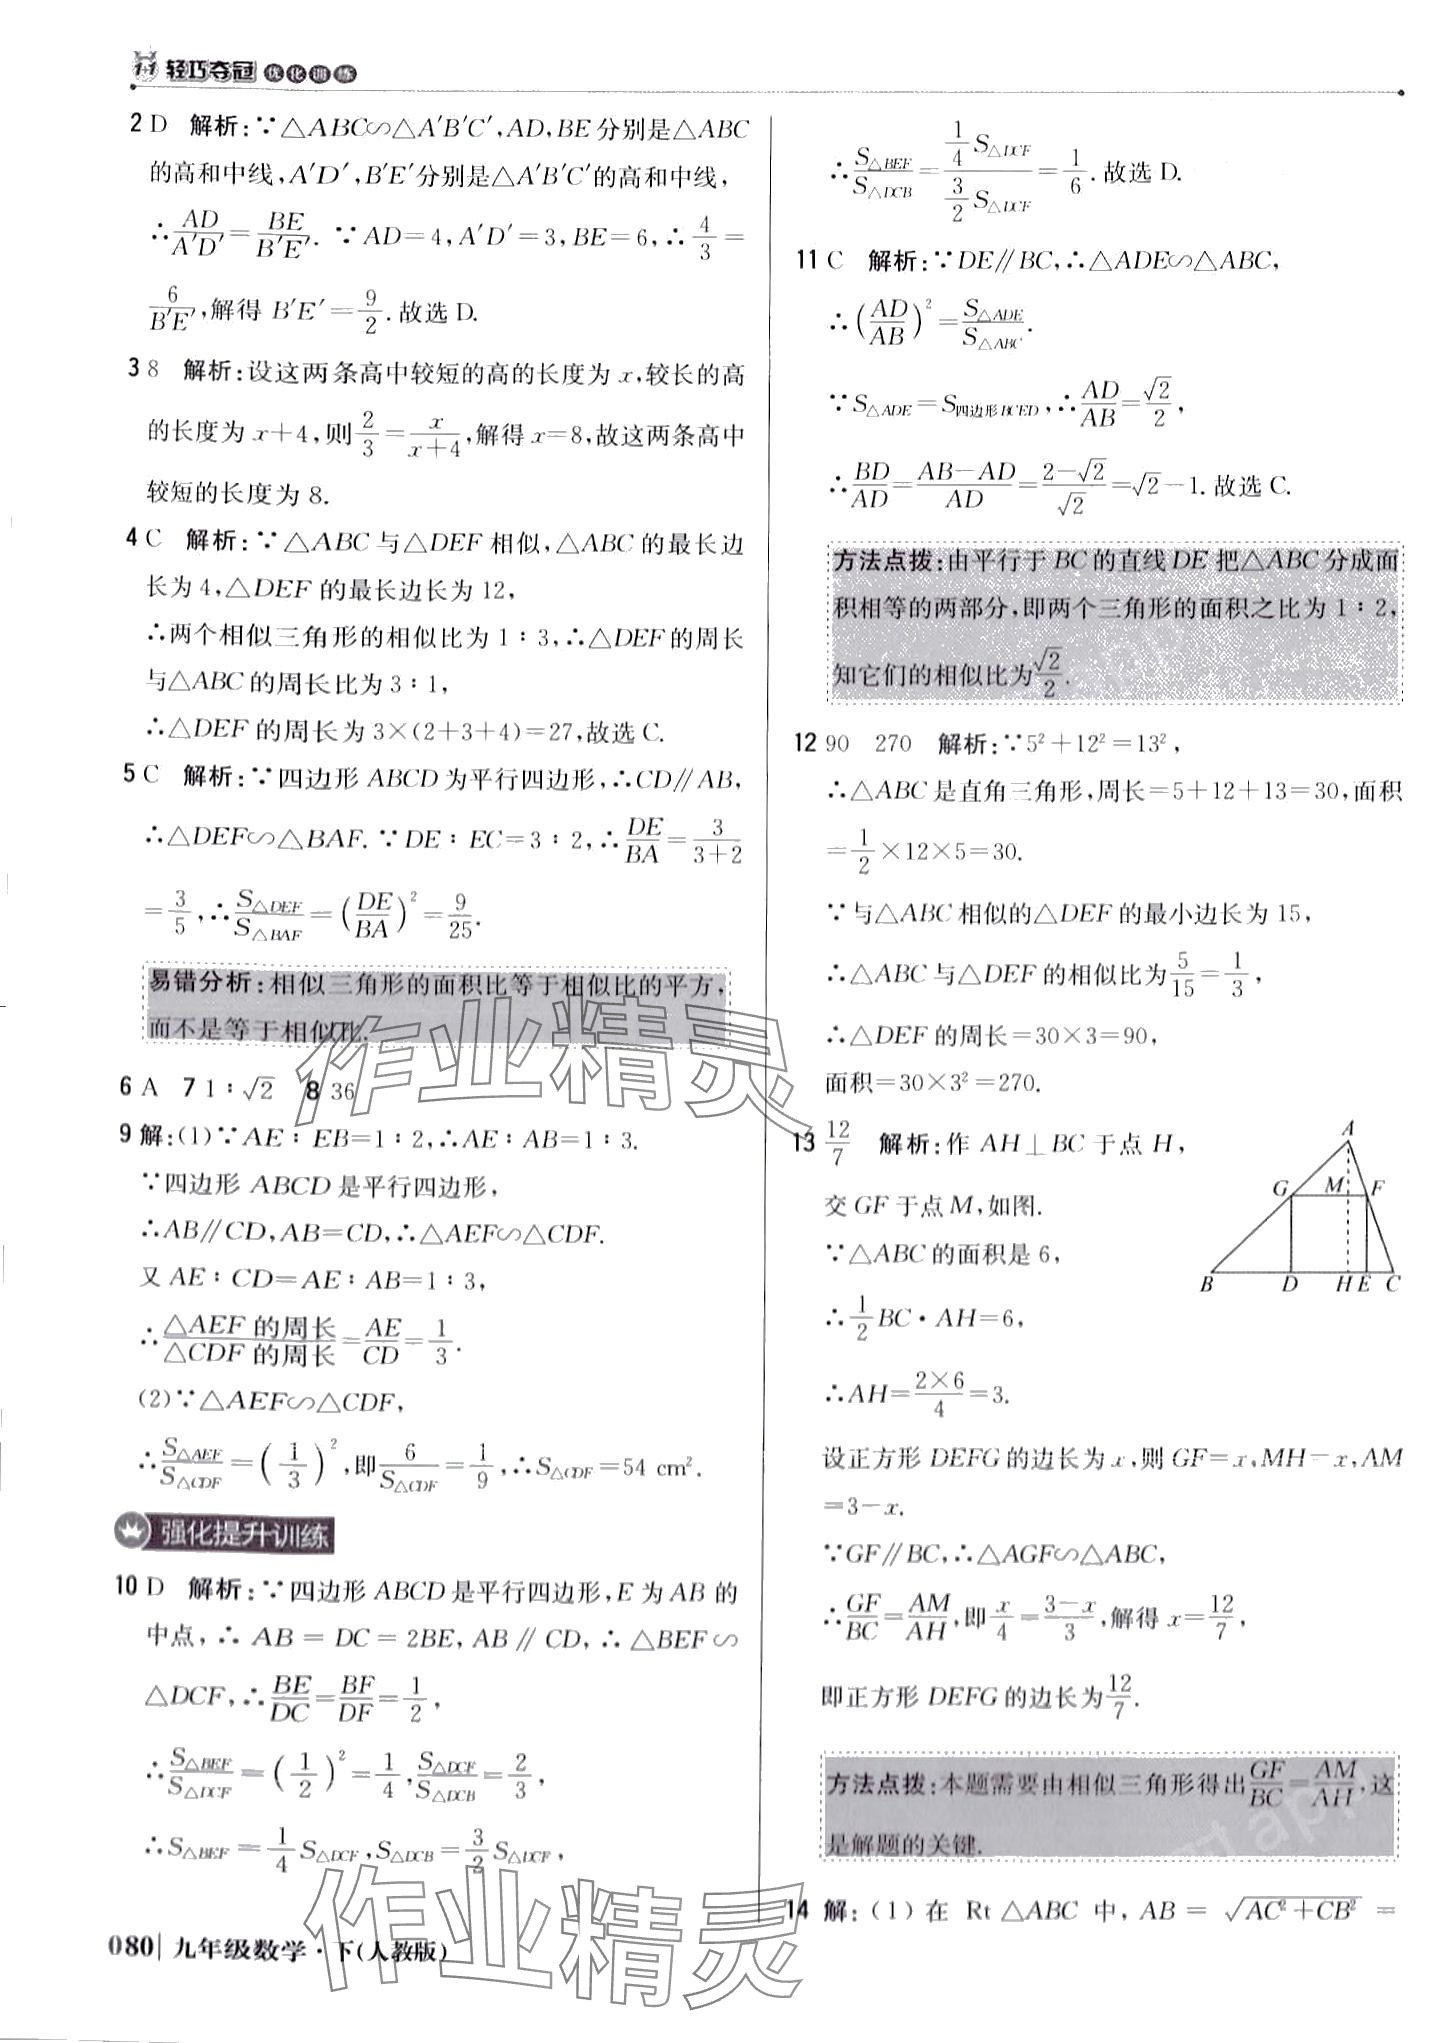 1+1 轻巧夺冠 优化训练
2 D 解析:∵△ABC∽△A′B′C′,AD,BE分别是△ABC
的高和中线,A′D′,B′E′分别是△A′B′C′的高和中线,
∴AD/A′D′=BE/B′E′. ∵AD=4,A′D′=3,BE=6,∴4/3=
6/B′E′,解得 B′E′=9/2.故选D.
3 8 解析:设这两条高中较短的高的长度为x,较长的高
的长度为x+4,则2/3=x/(x+4),解得x=8,故这两条高中
较短的长度为8.
4 C 解析:∵△ABC与△DEF相似,△ABC的最长边
长为4,△DEF的最长边长为12,
∴两个相似三角形的相似比为1∶3,∴△DEF的周长
与△ABC的周长比为3∶1,
∴△DEF的周长为3×(2+3+4)=27,故选C.
5 C 解析:∵四边形ABCD为平行四边形,∴CD∥AB,
∴△DEF∽△BAF.∵DE∶EC=3∶2,∴DE/BA=3/(3+2)
=3/5,∴S△DEF/S△BAF=(DE/BA)²=9/25.
易错分析:相似三角形的面积比等于相似比的平方,
而不是等于相似比.
6 A 7 1∶√2 8 36
9 解:(1)∵AE∶EB=1∶2,∴AE∶AB=1∶3.
∵四边形ABCD是平行四边形,
∴AB∥CD,AB=CD,∴△AEF∽△CDF.
又AE∶CD=AE∶AB=1∶3,
∴△AEF的周长/△CDF的周长=AE/CD=1/3.
(2)∵△AEF∽△CDF,
∴S△AEF/S△CDF=(1/3)²,即6/S△CDF=1/9,∴S△CDF=54 cm².
强化提升训练
10 D 解析:∵四边形ABCD是平行四边形,E为AB的
中点,∴AB=DC=2BE,AB∥CD,∴△BEF∽
△DCF,∴BE/DC=BF/DF=1/2,
∴S△BEF/S△DCF=(1/2)²=1/4,S△DCF/S△DCB=2/3,
∴S△BEF=1/4 S△DCF,S△DCB=3/2 S△DCF,
080 九年级数学·下(人教版)
∴S△BEF/S△DCB=(1/4 S△DCF)/(3/2 S△DCF)=1/6.故选D.
11 C 解析:∵DE∥BC,∴△ADE∽△ABC,
∴(AD/AB)²=S△ADE/S△ABC.
∵S△ADE=S四边形BCED,∴AD/AB=√2/2,
∴BD/AD=(AB-AD)/AD=(2-√2)/√2=√2-1.故选C.
方法点拨:由平行于BC的直线DE把△ABC分成面
积相等的两部分,即两个三角形的面积之比为1∶2,
知它们的相似比为√2/2.
12 90 270 解析:∵5²+12²=13²,
∴△ABC是直角三角形,周长=5+12+13=30,面积
=1/2×12×5=30.
∵与△ABC相似的△DEF的最小边长为15,
∴△ABC与△DEF的相似比为5/15=1/3,
∴△DEF的周长=30×3=90,
面积=30×3²=270.
13 12/7 解析:作AH⊥BC于点H,
交GF于点M,如图.
∵△ABC的面积是6,
∴1/2 BC·AH=6,
∴AH=(2×6)/4=3.
A
G M F
B D H E C
设正方形DEFG的边长为x,则GF=x,MH=x,AM
=3-x.
∵GF∥BC,∴△AGF∽△ABC,
∴GF/BC=AM/AH,即x/4=(3-x)/3,解得x=12/7,
即正方形DEFG的边长为12/7.
方法点拨:本题需要由相似三角形得出GF/BC=AM/AH,这
是解题的关键.
14 解:(1)在Rt△ABC中,AB=√(AC²+CB²)=
作业精灵
作业精灵